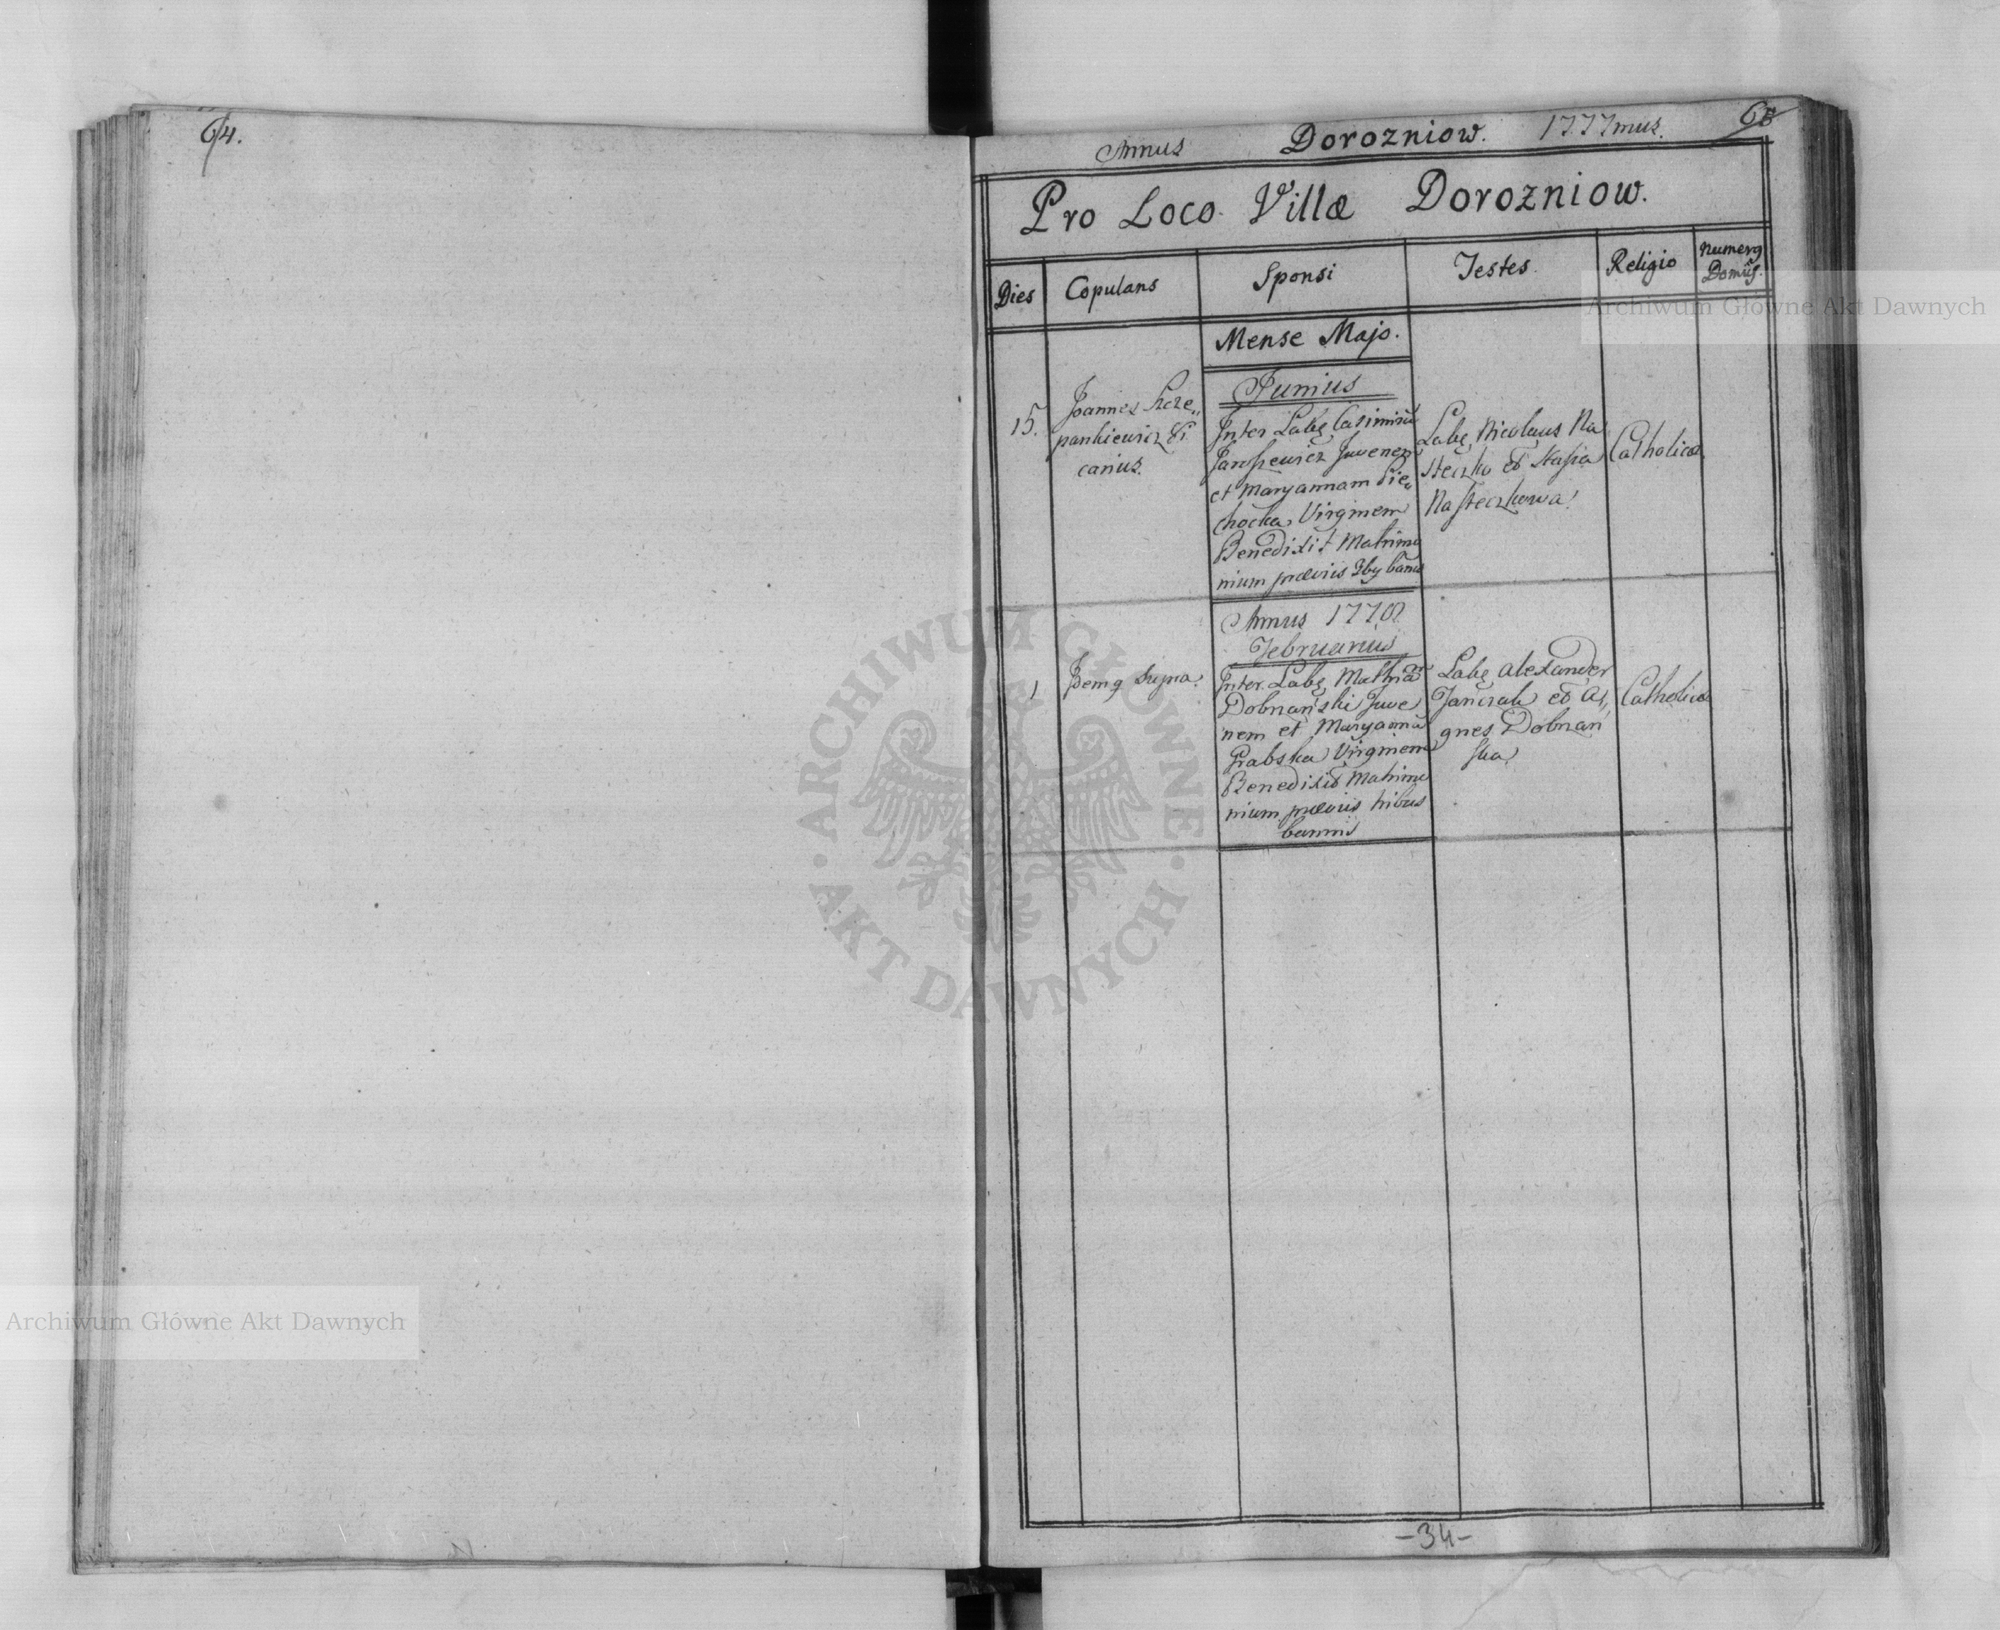 64.
65
Annus Dorozniow. 1777mus.
Pro Loco Villæ Dorozniow.
Dies
Copulans
Sponsi
Testes.
Religio
Numerq
Domûs.
Mense Majo.
Junius
15.
Joannes Szcze,,
pankiewicz Vi
carius.
Inter Labę Casimirū
Jaroszewicz Juvenem
et Maryannam Cie,,
chocka Virginem
Benedixit Matrimo
nium præviis 3by bānis
Labę Nicolaus Na
steczko et Stasia
Nasteczkowa
Catholica
Annus 1778
Februarius
1
Idemq supra.
Inter Labę Mathiā
Dobrzański Juve
nem et Maryannā
Grabska Virginem
Benedixit Matrimo
nium præviis tribus
bannis
Labę Alexander
Jańczak et A,,
gnes Dobrzań
ska
Catholica
-34-
Archiwum Główne Akt Dawnych
Archiwum Główne Akt Dawnych
ARCHIWUM GŁÓWNE · AKT DAWNYCH ·